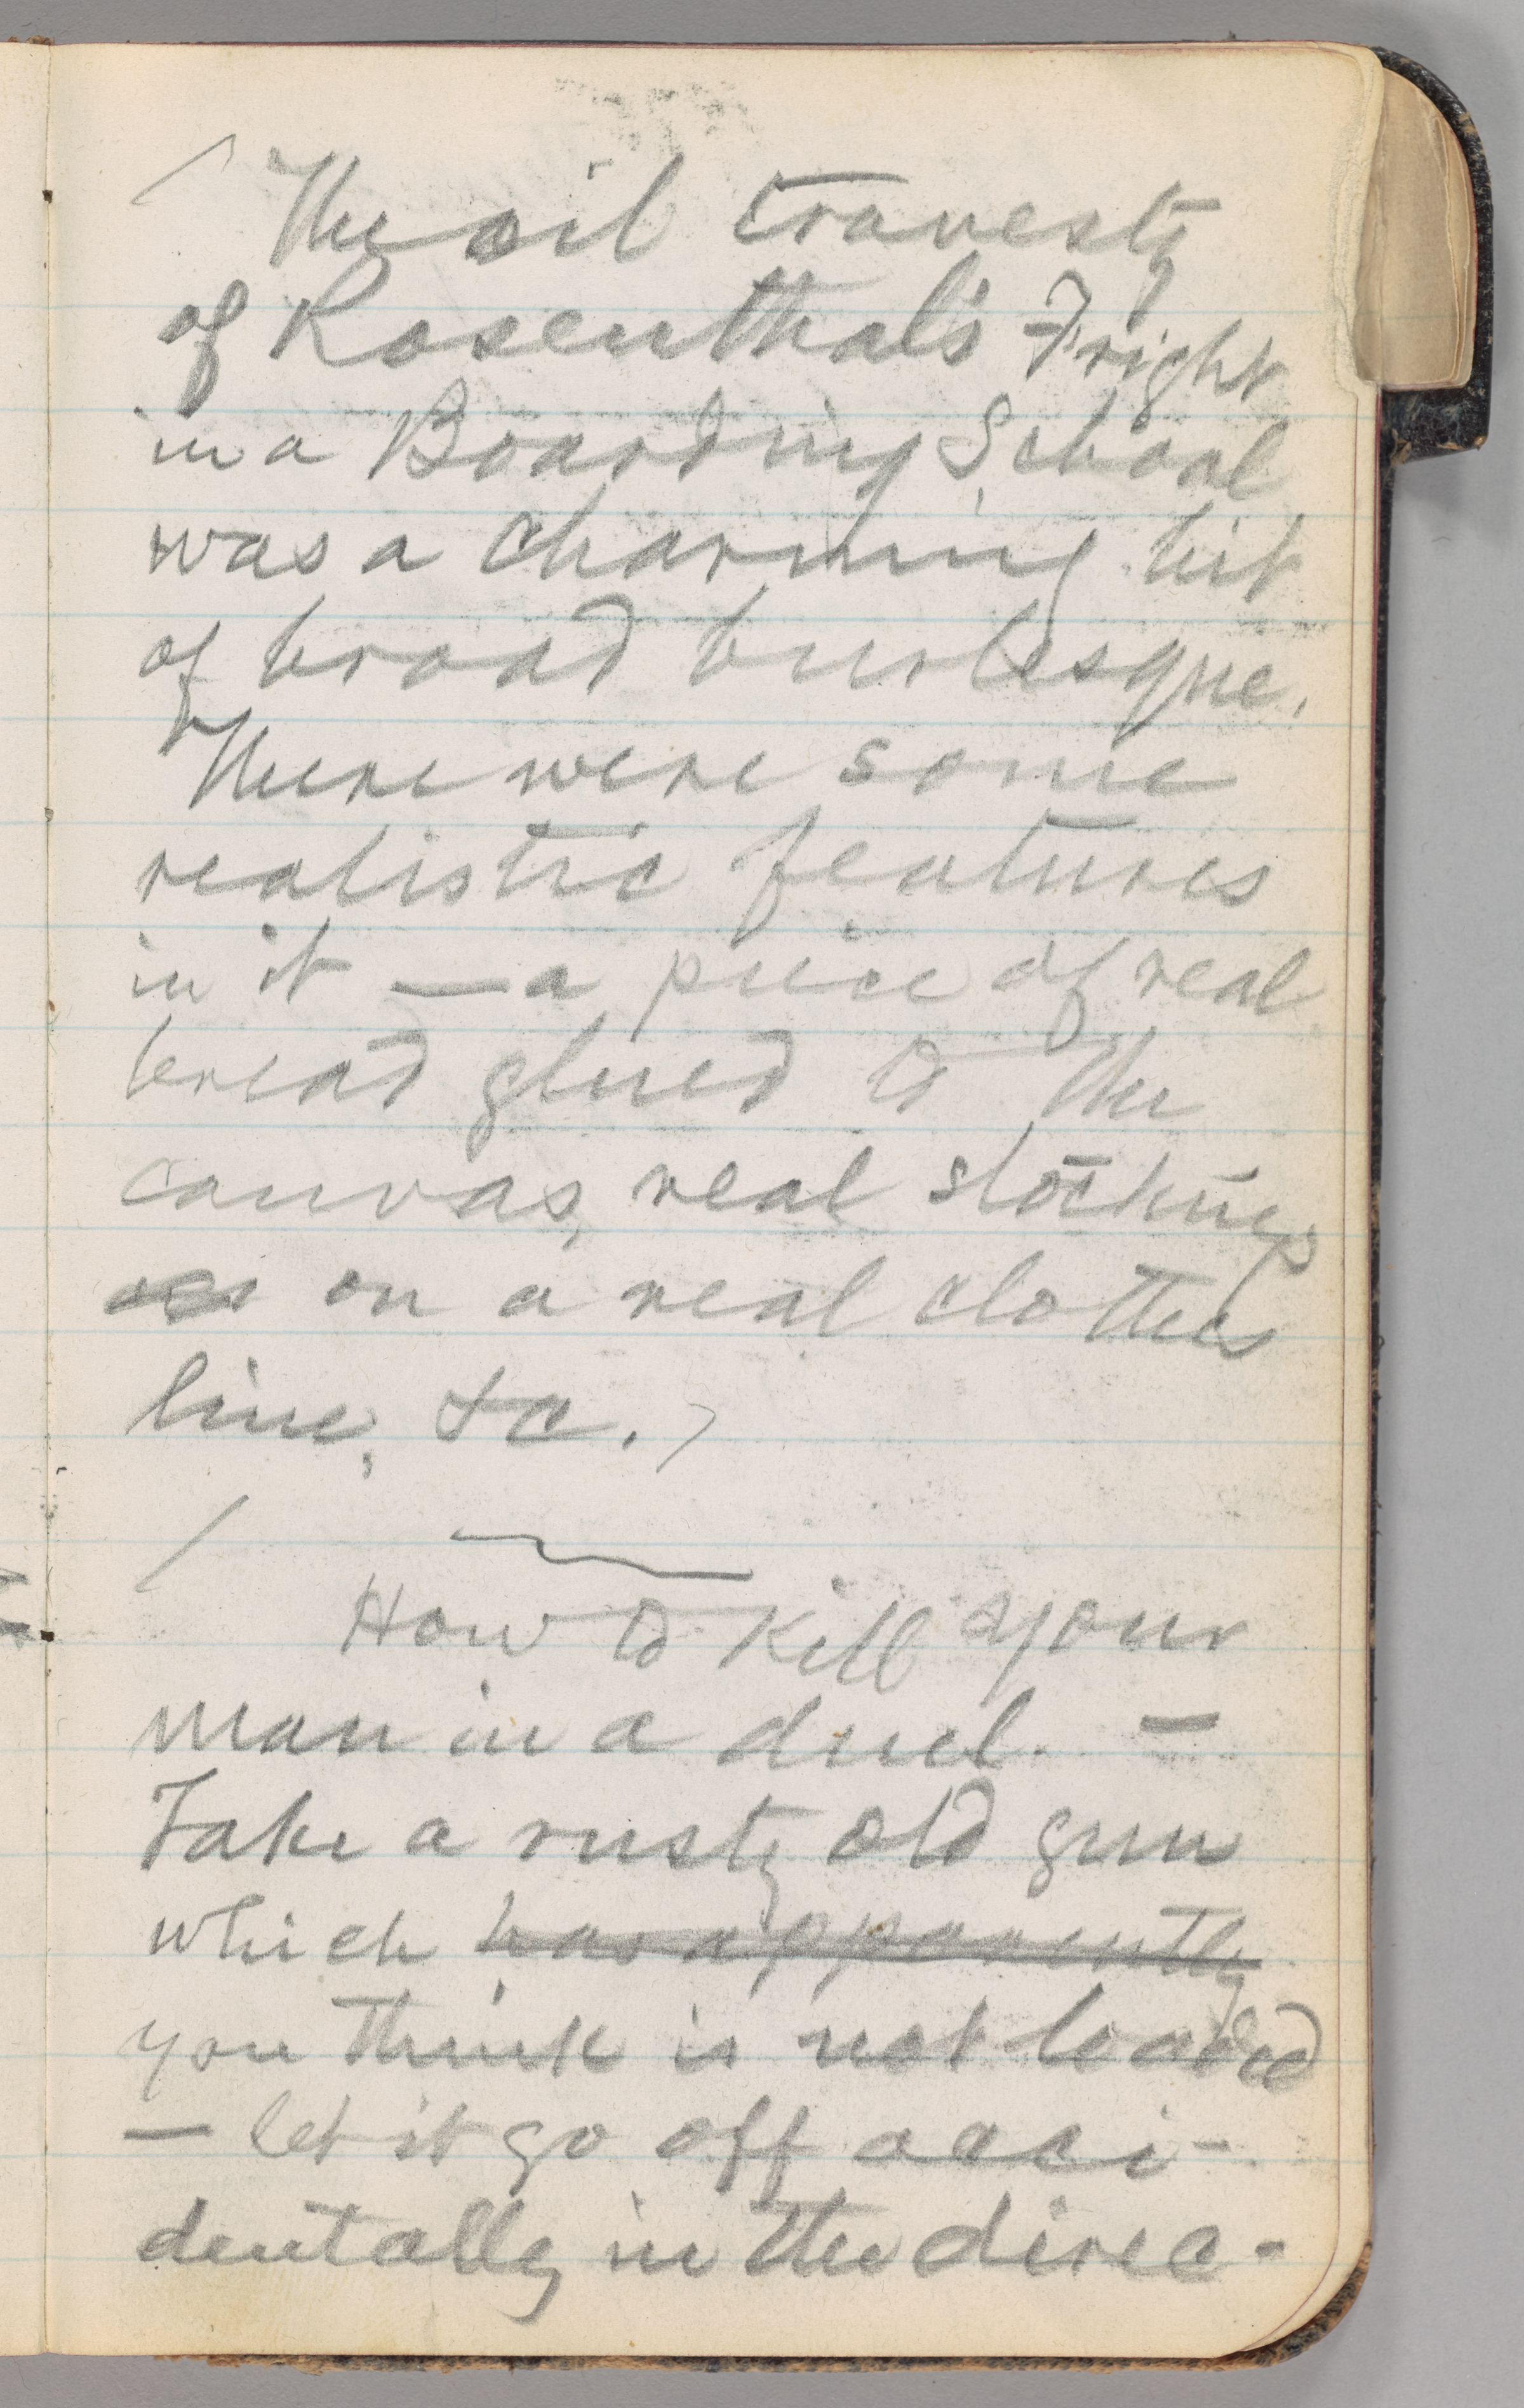 The oil travesty
of Rosenthal's Fright
in a Boarding School
was a charming bit
of broad burlesque.
There were some
realistic features
in it — a piece of real
bread glued to the
canvas, real stockings
on a real clothes
line, &c.)
How to kill your
man in a duel. —
Take a rusty old gun
which has apparently
you think is not loaded
— let it go off acci-
dentally in the direc-